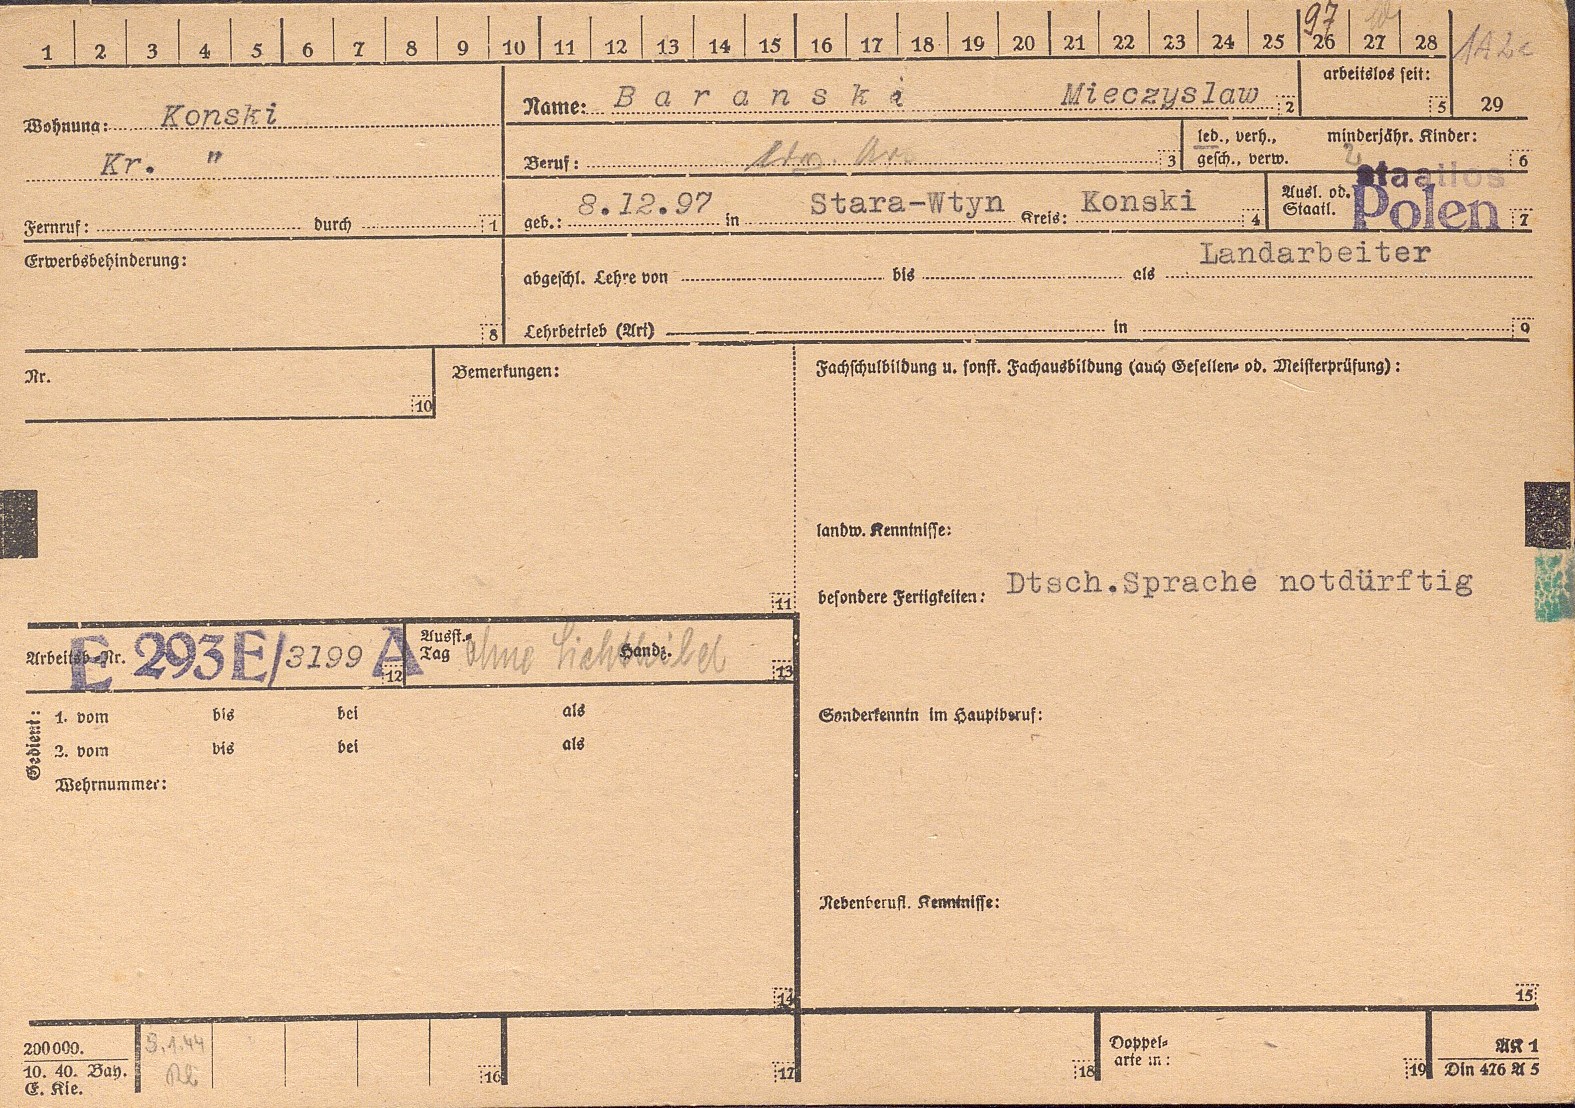 1 2 3 4 5 6 7 8 9 10 11 12 13 14 15 16 17 18 19 20 21 22 23 24 25 26 27 28
97
29
Wohnung: Konski
Kr. "
Fernruf: durch 1
Name: Baranski Mieczyslaw 2
arbeitslos seit: 5
Beruf: 3
led., verh., gesch., verw.
minderjähr. Kinder: 6
geb.: 8.12.97 in Stara-Wtyn Kreis: Konski 4
Ausl. od. Staatl. staatlos Polen 7
Erwerbsbehinderung: 8
abgeschl. Lehre von bis als Landarbeiter
Lehrbetrieb (Art) in 9
Nr. 10
Bemerkungen: 11
Fachschulbildung u. sonst. Fachausbildung (auch Gesellen- od. Meisterprüfung):
landw. Kenntnisse:
besondere Fertigkeiten: Dtsch.Sprache notdürftig
Arbeitsb.-Nr. E 293 E/3199 A 12
Ausst.-Tag ohne Lichtbild Handz. 13
Gedient:
1. vom bis bei als
2. vom bis bei als
Wehrnummer:
14
Sonderkenntn im Hauptberuf:
Nebenberufl. Kenntnisse:
15
200000.
10. 40. Bay.
E. Kie.
3.1.44
16
17
18
Doppel-
arte in: 19
AK 1
Din 476 A 5